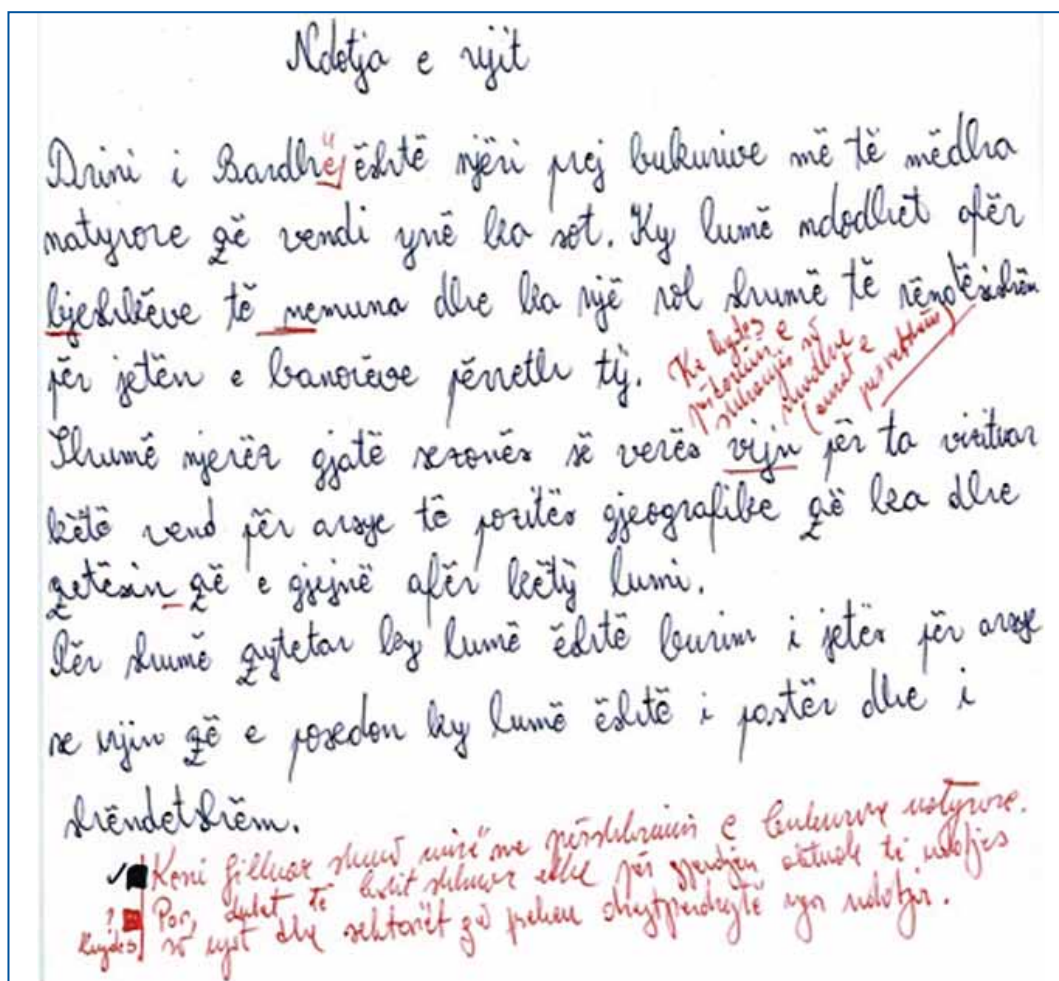 Ndotja e ujit
Drini i Bardhë është njëri prej bukurive më të mëdha
natyrore që vendi ynë ka sot. Ky lumë ndodhet afër
bjeshkëve të nemuna dhe ka një rol shumë të rëndësishëm
për jetën e banorëve përreth tij.
Ke kujdes
përdorimin e
shkronjës së
madhe
(emrat e
përveçëm)
Shumë njerëz gjatë sezonës së verës vijn për ta vizituar
këtë vend për arsye të pozitës gjeografike që ka dhe
qetësin që e gjejnë afër këtij lumi.
Për shumë qytetar ky lumë është burim i jetës për arsye
se ujin që e posedon ky lumë është i pastër dhe i
shëndetshëm.
✓ Keni filluar shumë mirë me përshkrimin e bukurive natyrore.
? Por, duhet të kishit shkruar edhe për gjendjen aktuale të ndotjes
Kujdes së ujit dhe sektorët që preken drejtpërdrejtë nga ndotja.